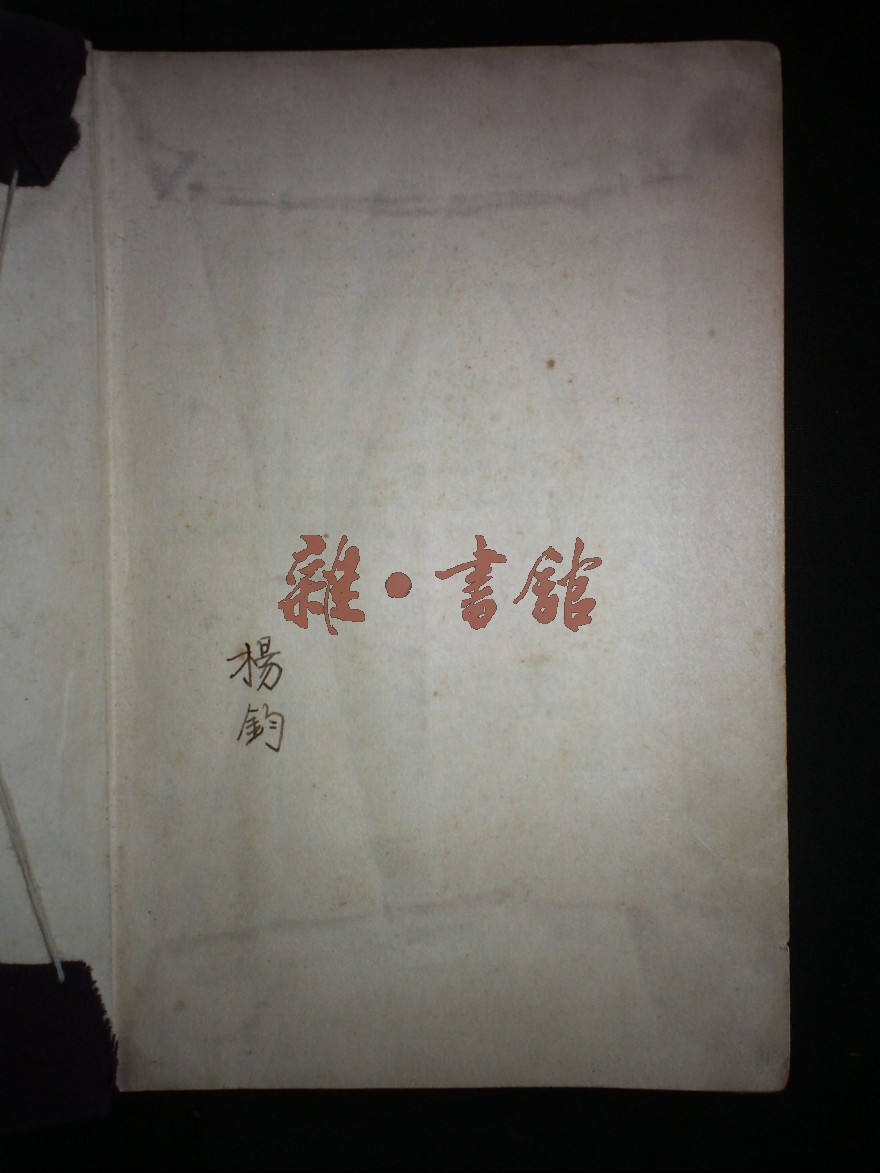 雜·書館
楊
鈞